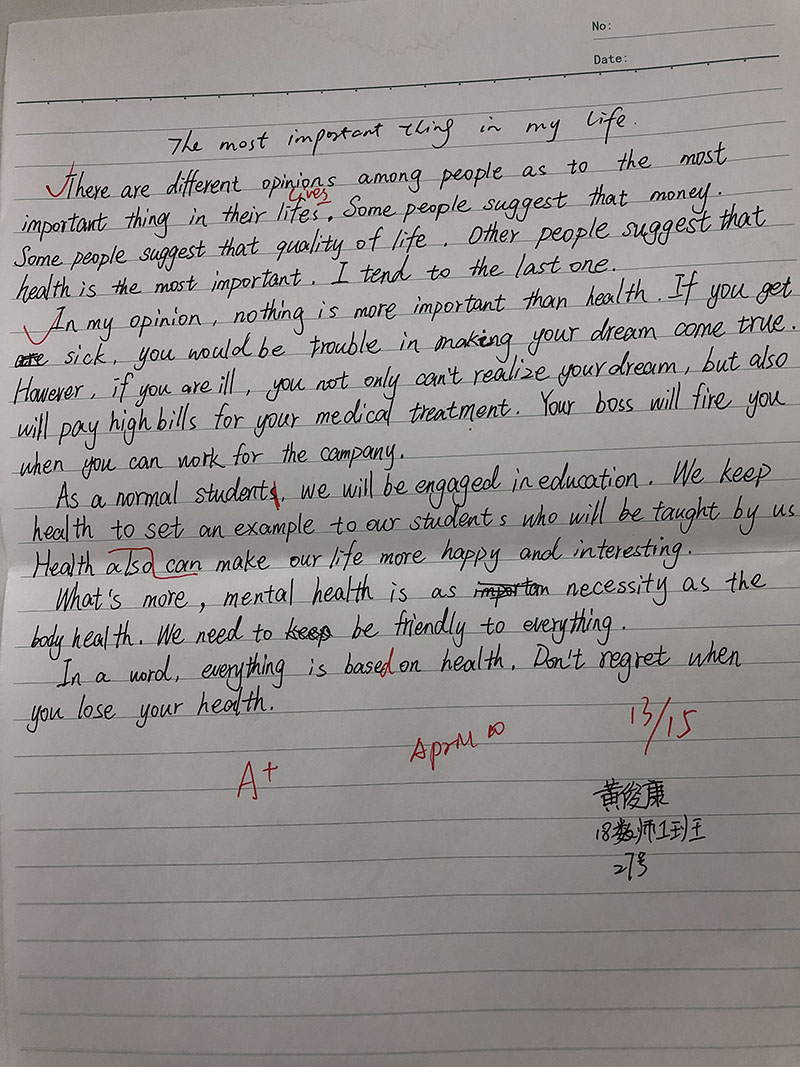 No:
Date:
The most important thing in my life.
There are different opinions among people as to the most
lives
important thing in their lifes. Some people suggest that money.
Some people suggest that quality of life. Other people suggest that
health is the most important. I tend to the last one.
In my opinion, nothing is more important than health. If you get
are sick, you would be trouble in making your dream come true.
However, if you are ill, you not only can't realize your dream, but also
will pay high bills for your medical treatment. Your boss will fire you
when you can work for the campany.
As a normal students, we will be engaged in education. We keep
health to set an example to our students who will be taught by us
Health also can make our life more happy and interesting.
What's more, mental health is as importan necessity as the
body health. We need to keep be friendly to everything.
In a word, everything is based on health. Don't regret when
you lose your health.
A+ April 13/15
黄俊康
18数师1班
27号